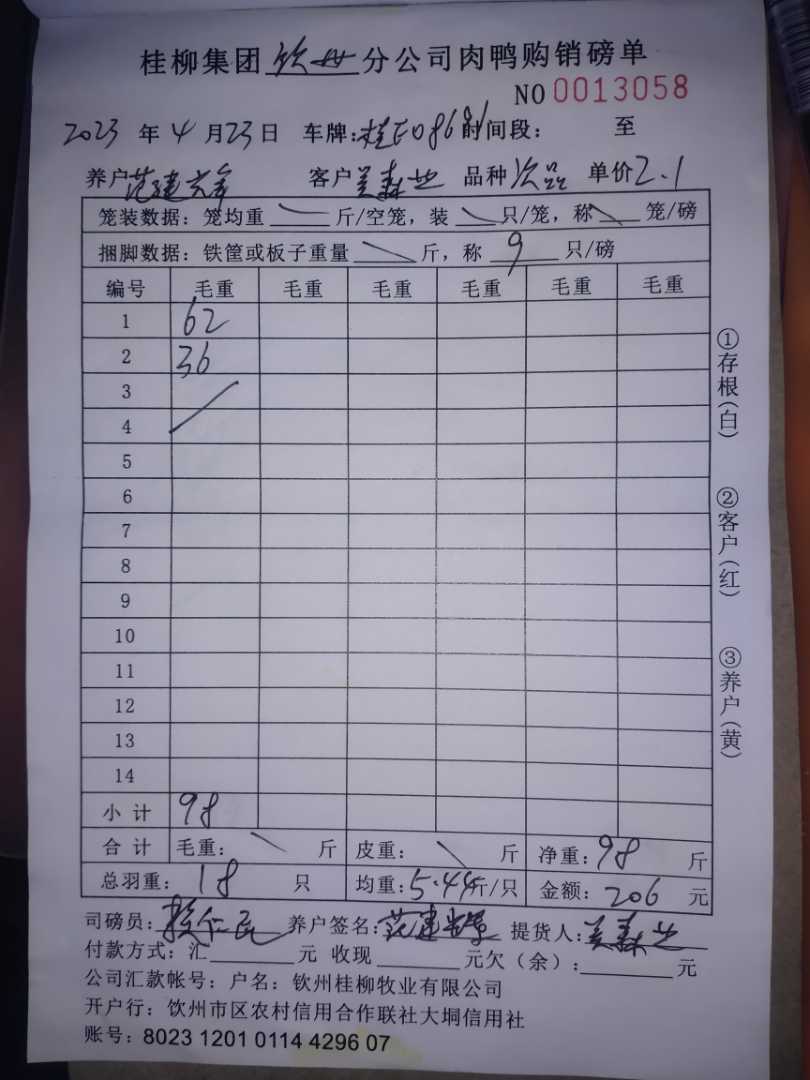 桂柳集团钦州分公司肉鸭购销磅单
NO 0013058
2023 年 4 月 23 日 车牌: 时间段: 至
养户 范建 客户 森 品种 次品 单价 2.1
笼装数据: 笼均重 斤/空笼, 装 只/笼, 称 笼/磅
捆脚数据: 铁筐或板子重量 斤, 称 9 只/磅
编号 毛重 毛重 毛重 毛重 毛重 毛重
1 62
2 36
3
4
5
6
7
8
9
10
11
12
13
14
小 计 98
合 计 毛重: 斤 皮重: 斤 净重: 98 斤
总羽重: 18 只 均重: 5.44 斤/只 金额: 206 元
司磅员: 养户签名: 范建 提货人: 森
付款方式: 汇 元 收现 元欠(余): 元
公司汇款帐号: 户名: 钦州桂柳牧业有限公司
开户行: 钦州市区农村信用合作联社大垌信用社
账号: 8023 1201 0114 4296 07
①存根(白)
②客户(红)
③养户(黄)